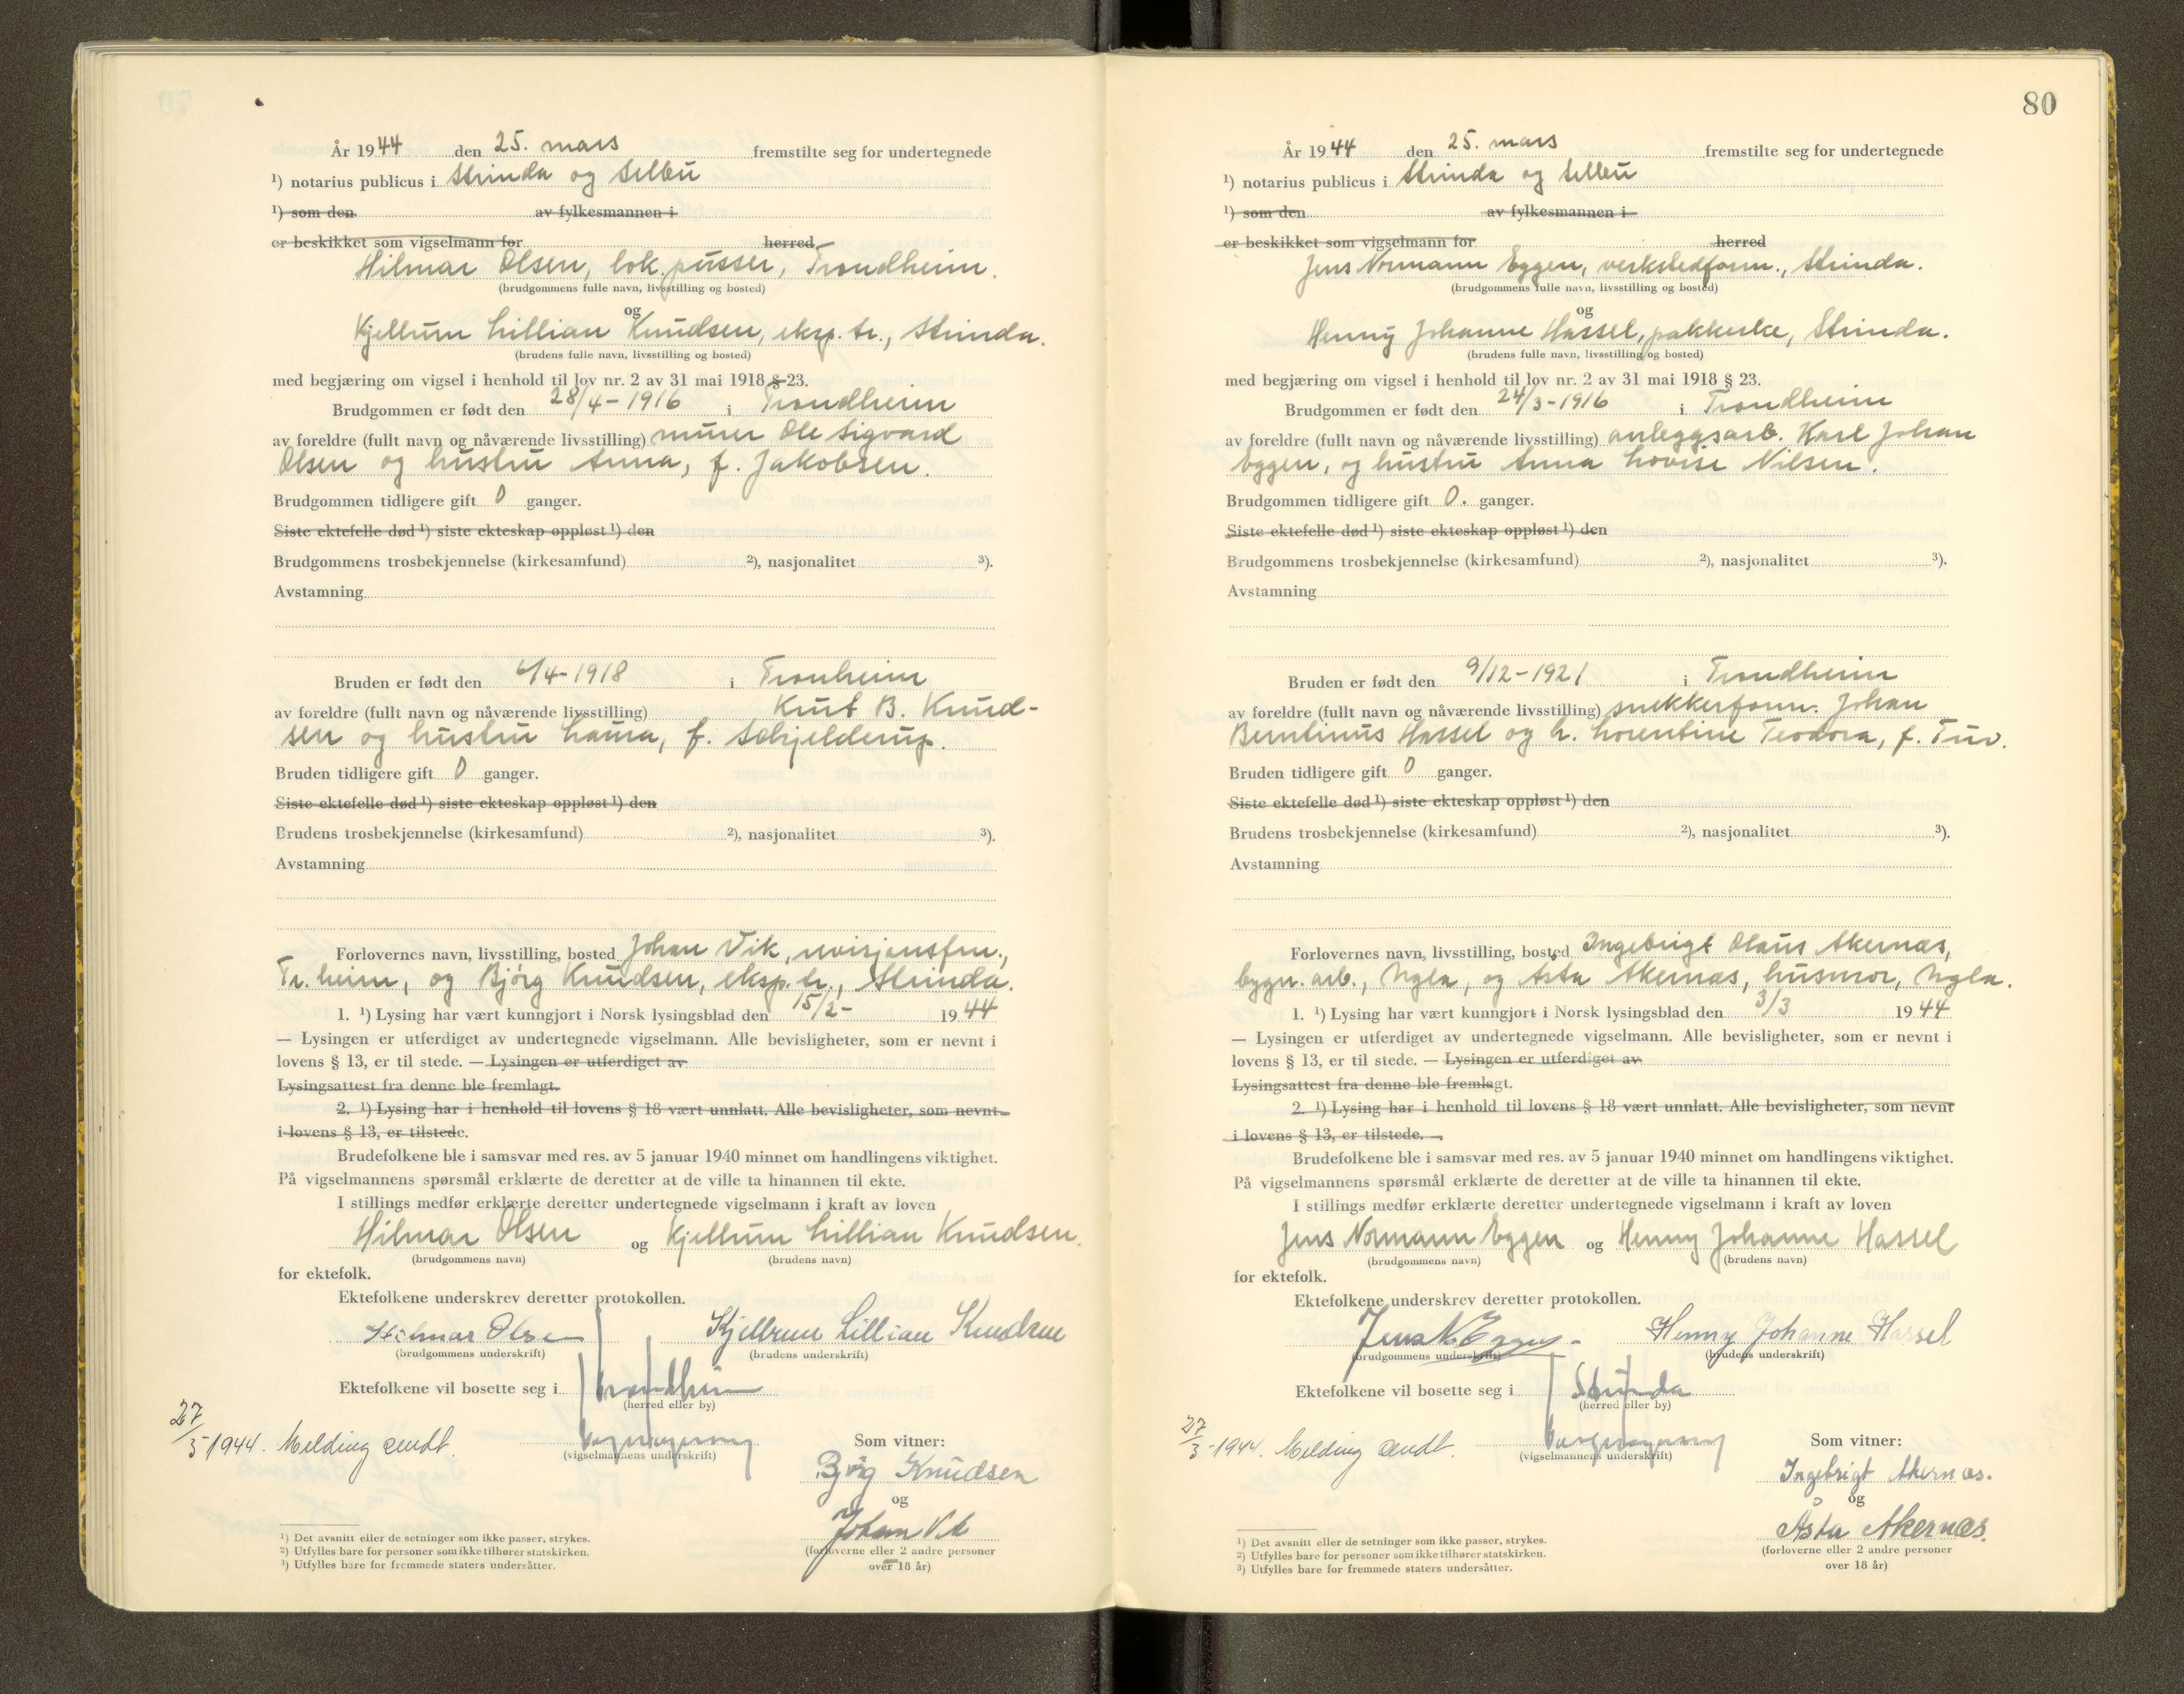 År 1944 den 25. mars fremstilte seg for undertegnede
¹) notarius publicus i Strinda og Selbu
¹) som den av fylkesmannen i
er beskikket som vigselmann for herred
Hilmar Olsen, lok.pusser, Trondheim.
(brudgommens fulle navn, livsstilling og bosted)
og
Kjellrun Lillian Knudsen, eksp. tr., Strinda.
(brudens fulle navn, livsstilling og bosted)
med begjæring om vigsel i henhold til lov nr. 2 av 31 mai 1918 § 23.
Brudgommen er født den 28/4-1916 i Trondheim
av foreldre (fullt navn og nåværende livsstilling) murer Ole Sigvard
Olsen og hustru Anna, f. Jakobsen.
Brudgommen tidligere gift 0 ganger.
Siste ektefelle død ¹) siste ekteskap oppløst ¹) den
Brudgommens trosbekjennelse (kirkesamfund) ²), nasjonalitet ³).
Avstamning
Bruden er født den 6/4-1918 i Tronheim
av foreldre (fullt navn og nåværende livsstilling) Knut B. Knud-
sen og hustru Laura, f. Schjelderup.
Bruden tidligere gift 0 ganger.
Siste ektefelle død ¹) siste ekteskap oppløst ¹) den
Brudens trosbekjennelse (kirkesamfund) ²), nasjonalitet ³).
Avstamning
Forlovernes navn, livsstilling, bosted Johan Vik, revisjonsfm.,
Tr.heim, og Bjørg Knudsen, eksp. tr., Strinda.
1. ¹) Lysing har vært kunngjort i Norsk lysingsblad den 15/2- 1944
— Lysingen er utferdiget av undertegnede vigselmann. Alle bevisligheter, som er nevnt i
lovens § 13, er til stede. — Lysingen er utferdiget av
Lysingsattest fra denne ble fremlagt.
2. ¹) Lysing har i henhold til lovens § 18 vært unnlatt. Alle bevisligheter, som nevnt
i lovens § 13, er tilstede.
Brudefolkene ble i samsvar med res. av 5 januar 1940 minnet om handlingens viktighet.
På vigselmannens spørsmål erklærte de deretter at de ville ta hinannen til ekte.
I stillings medfør erklærte deretter undertegnede vigselmann i kraft av loven
Hilmar Olsen og Kjellrun Lillian Knudsen.
(brudgommens navn) (brudens navn)
for ektefolk.
Ektefolkene underskrev deretter protokollen.
Hilmar Olsen Kjellrun Lillian Knudsen
(brudgommens underskrift) (brudens underskrift)
Ektefolkene vil bosette seg i Trondheim
(herred eller by)
27/3-1944. Melding sendt.
(vigselmannens underskrift)
Som vitner:
Bjørg Knudsen
og
Johan Vik
(forloverne eller 2 andre personer
over 18 år)
¹) Det avsnitt eller de setninger som ikke passer, strykes.
²) Utfylles bare for personer som ikke tilhører statskirken.
³) Utfylles bare for fremmede staters undersåtter.
80
År 1944 den 25. mars fremstilte seg for undertegnede
¹) notarius publicus i Strinda og Selbu
¹) som den av fylkesmannen i
er beskikket som vigselmann for herred
Jens Normann Eggen, verkstedform., Strinda.
(brudgommens fulle navn, livsstilling og bosted)
og
Henny Johanne Hassel, pakkerske, Strinda.
(brudens fulle navn, livsstilling og bosted)
med begjæring om vigsel i henhold til lov nr. 2 av 31 mai 1918 § 23.
Brudgommen er født den 24/3-1916 i Trondheim
av foreldre (fullt navn og nåværende livsstilling) anleggsarb. Karl Johan
Eggen, og hustru Anna Lovise Nilsen.
Brudgommen tidligere gift 0. ganger.
Siste ektefelle død ¹) siste ekteskap oppløst ¹) den
Brudgommens trosbekjennelse (kirkesamfund) ²), nasjonalitet ³).
Avstamning
Bruden er født den 9/12-1921 i Trondheim
av foreldre (fullt navn og nåværende livsstilling) snekkerform. Johan
Berntinus Hassel og h. Lorentine Teodora, f. Tuv.
Bruden tidligere gift 0 ganger.
Siste ektefelle død ¹) siste ekteskap oppløst ¹) den
Brudens trosbekjennelse (kirkesamfund) ²), nasjonalitet ³).
Avstamning
Forlovernes navn, livsstilling, bosted Ingebrigt Olaus Akernæs,
bygn. arb., Ugla, og Asta Akernæs, husmor, Ugla.
1. ¹) Lysing har vært kunngjort i Norsk lysingsblad den 3/3 1944
— Lysingen er utferdiget av undertegnede vigselmann. Alle bevisligheter, som er nevnt i
lovens § 13, er til stede. — Lysingen er utferdiget av
Lysingsattest fra denne ble fremlagt.
2. ¹) Lysing har i henhold til lovens § 18 vært unnlatt. Alle bevisligheter, som nevnt
i lovens § 13, er tilstede.
Brudefolkene ble i samsvar med res. av 5 januar 1940 minnet om handlingens viktighet.
På vigselmannens spørsmål erklærte de deretter at de ville ta hinannen til ekte.
I stillings medfør erklærte deretter undertegnede vigselmann i kraft av loven
Jens Normann Eggen og Henny Johanne Hassel
(brudgommens navn) (brudens navn)
for ektefolk.
Ektefolkene underskrev deretter protokollen.
Jens N. Eggen Henny Johanne Hassel
(brudgommens underskrift) (brudens underskrift)
Ektefolkene vil bosette seg i Strinda
(herred eller by)
27/3-1944. Melding sendt.
(vigselmannens underskrift)
Som vitner:
Ingebrigt Akernæs.
og
Åsta Akernæs.
(forloverne eller 2 andre personer
over 18 år)
¹) Det avsnitt eller de setninger som ikke passer, strykes.
²) Utfylles bare for personer som ikke tilhører statskirken.
³) Utfylles bare for fremmede staters undersåtter.